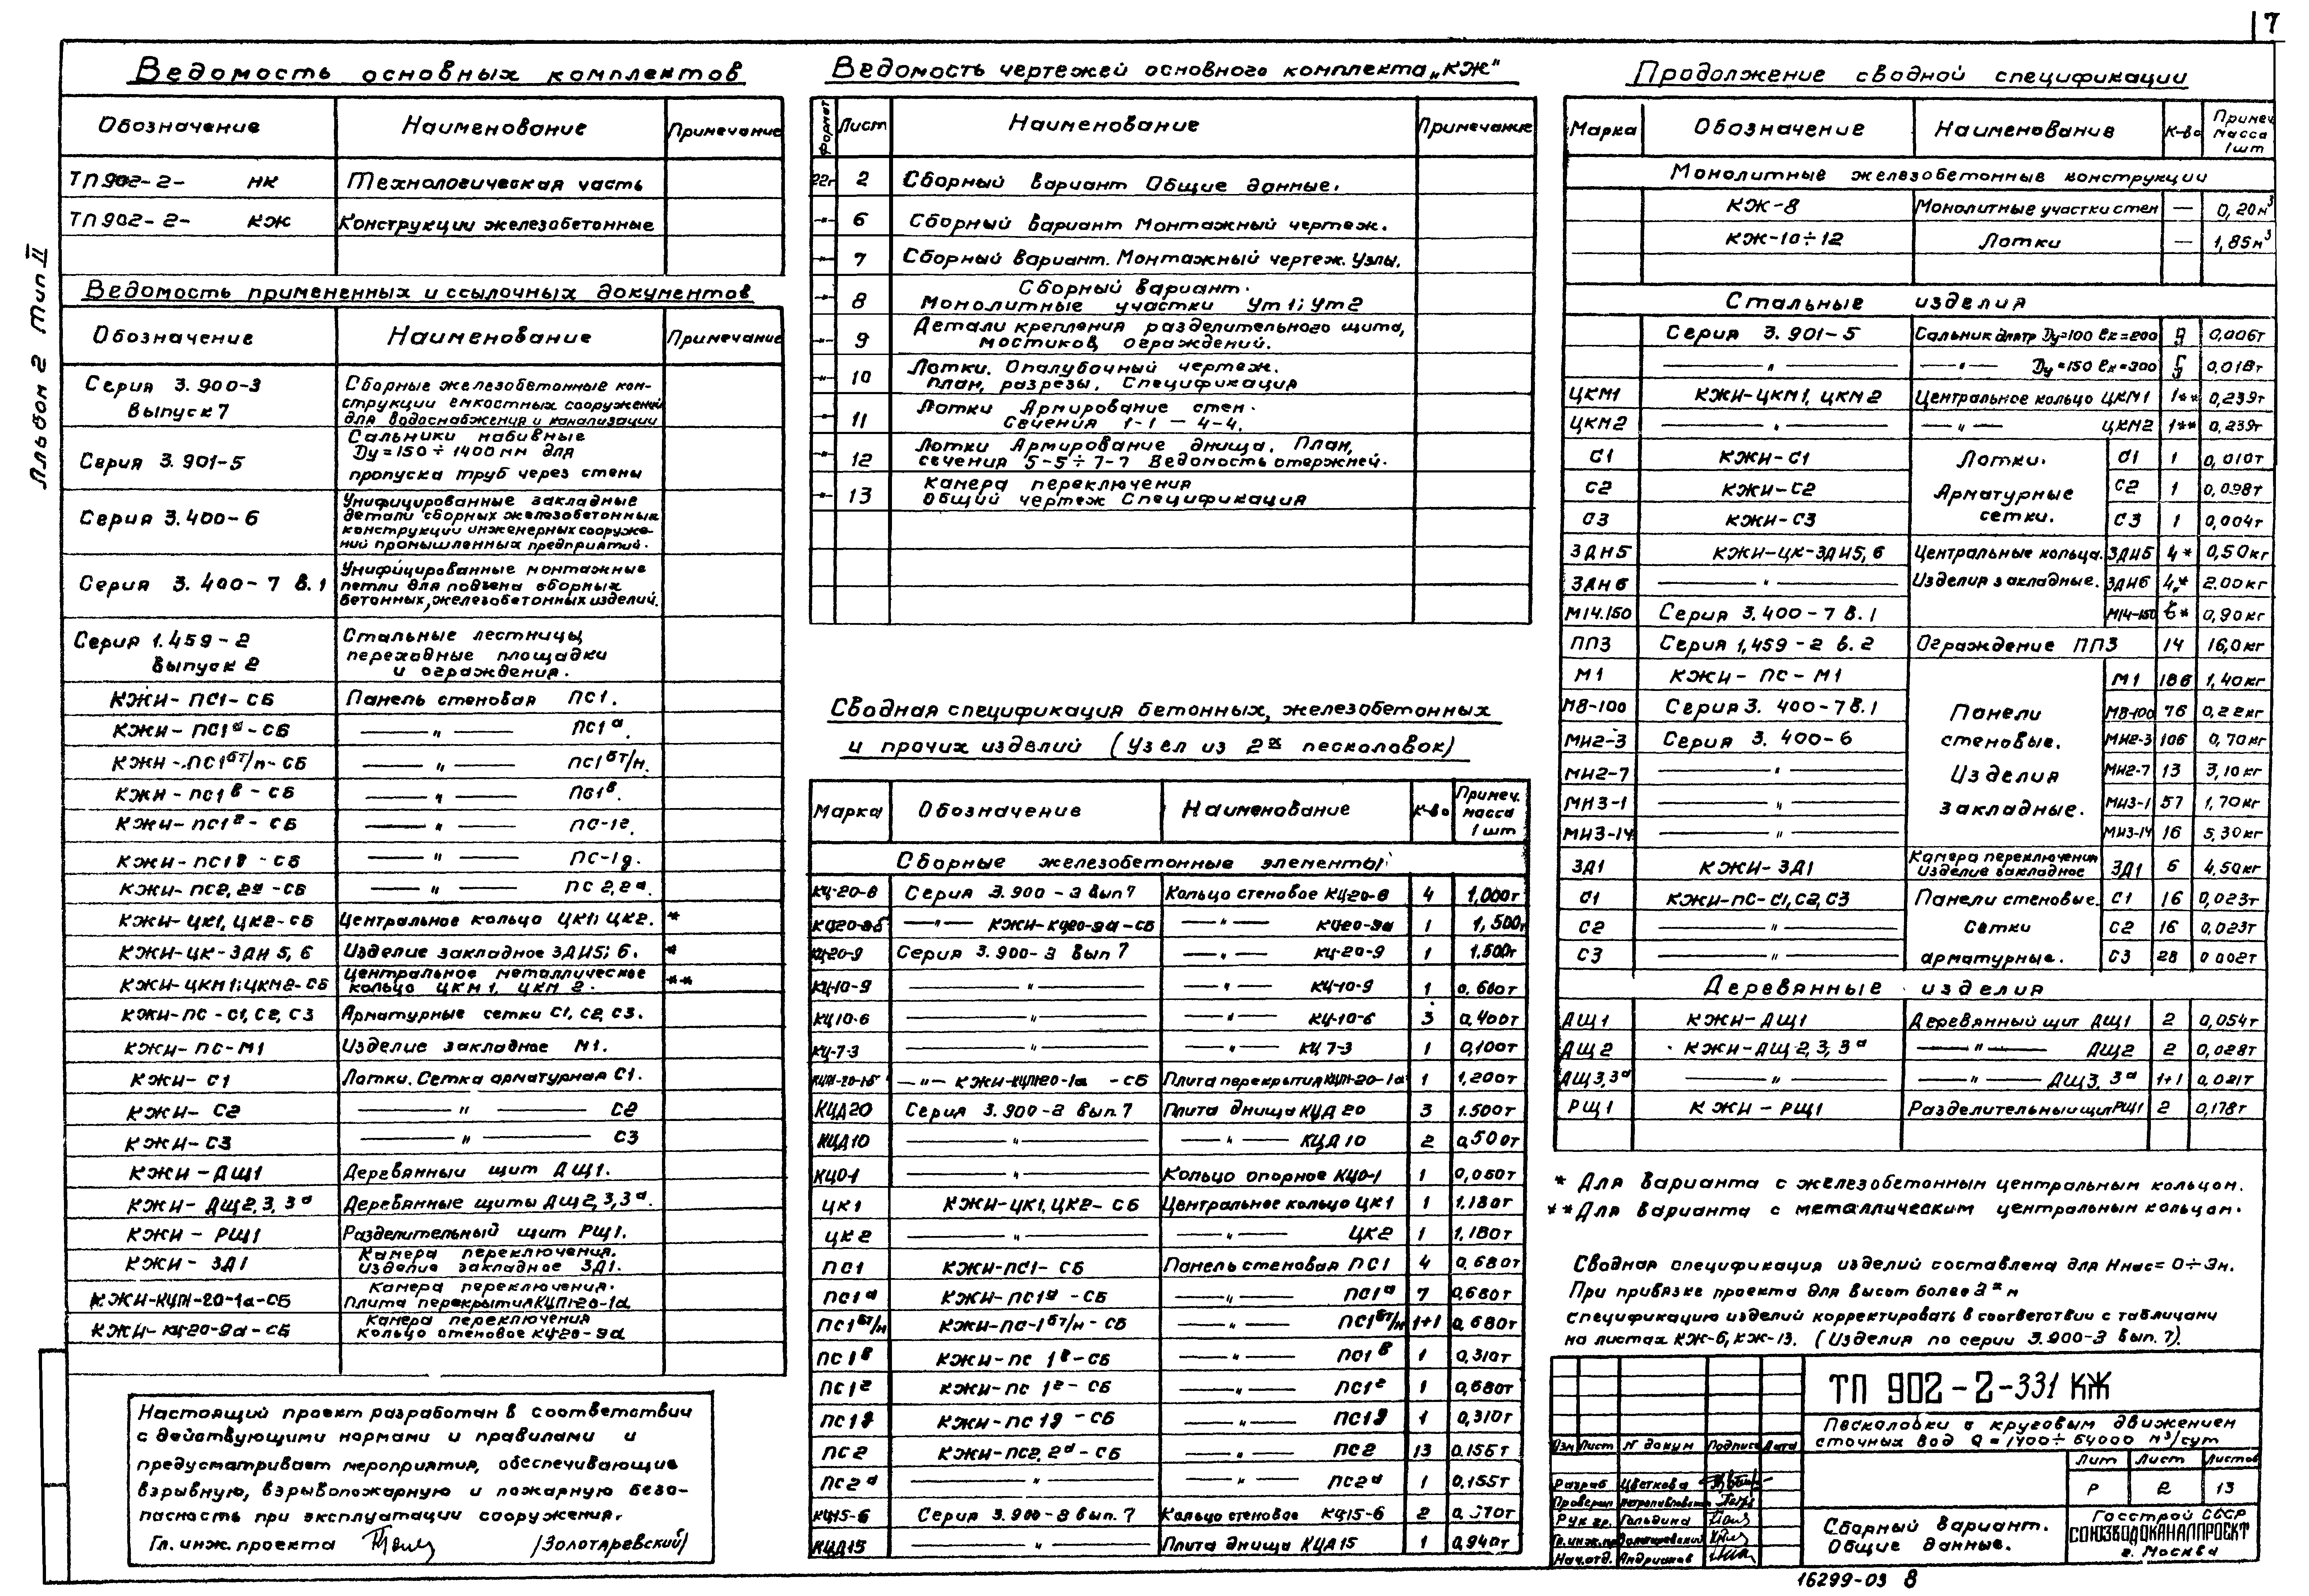 7
Альбом 2 Тип II
Ведомость основных комплектов
Обозначение Наименование Примечание
ТП902-2- НК Технологическая часть
ТП902-2- КЖ Конструкции железобетонные
Ведомость примененных и ссылочных документов
Обозначение Наименование Примечание
Серия 3.900-3 Выпуск 7 Сборные железобетонные кон-
струкции емкостных сооружений
для водоснабжения и канализации
Серия 3.901-5 Сальники набивные
Dу=150÷1400мм для
пропуска труб через стены
Серия 3.400-6 Унифицированные закладные
детали сборных железобетонных
конструкций инженерных сооруже-
ний промышленных предприятий.
Серия 3.400-7 в.1 Унифицированные монтажные
петли для подъема сборных
бетонных, железобетонных изделий.
Серия 1.459-2 Выпуск 2 Стальные лестницы,
переходные площадки
и ограждения.
КЖИ-ПС1-СБ Панель стеновая ПС1.
КЖИ-ПС1а-СБ —"— ПС1а.
КЖИ-ПС1бт/н-СБ —"— ПС1бт/н.
КЖИ-ПС1в-СБ —"— ПС1в.
КЖИ-ПС1г-СБ —"— ПС-1г.
КЖИ-ПС1д-СБ —"— ПС-1д.
КЖИ-ПС2,2а-СБ —"— ПС2,2а.
КЖИ-ЦК1,ЦК2-СБ Центральное кольцо ЦК1; ЦК2. *
КЖИ-ЦК-ЗДН5,6 Изделие закладное ЗДН5; 6. *
КЖИ-ЦКМ1;ЦКМ2-СБ Центральное металлическое
кольцо ЦКМ1, ЦКМ2. **
КЖИ-ПС-С1,С2,С3 Арматурные сетки С1, С2, С3.
КЖИ-ПС-М1 Изделие закладное М1.
КЖИ-С1 Лотки. Сетка арматурная С1.
КЖИ-С2 —"— С2
КЖИ-С3 —"— С3
КЖИ-ДЩ1 Деревянный щит ДЩ1.
КЖИ-ДЩ2,3,3а Деревянные щиты ДЩ2,3,3а.
КЖИ-РЩ1 Разделительный щит РЩ1.
КЖИ-ЗД1 Камера переключения.
Изделие закладное ЗД1.
КЖИ-КЦП1-20-1а-СБ Камера переключения.
Плита перекрытия КЦП1-20-1а
КЖИ-КЦ-20-9а-СБ Камера переключения
Кольцо стеновое КЦ-20-9а
Настоящий проект разработан в соответствии
с действующими нормами и правилами и
предусматривает мероприятия, обеспечивающие
взрывную, взрывопожарную и пожарную безо-
пасность при эксплуатации сооружения.
Гл. инж. проекта /Золотаревский/
Ведомость чертежей основного комплекта „КЖ"
Формат Лист Наименование Примечание
22г 2 Сборный вариант Общие данные.
-"- 6 Сборный вариант Монтажный чертеж.
-"- 7 Сборный вариант. Монтажный чертеж. Узлы.
-"- 8 Сборный вариант.
Монолитные участки Ум1; Ум2
-"- 9 Детали крепления разделительного щита,
мостиков, ограждений.
-"- 10 Лотки. Опалубочный чертеж.
План, разрезы. Спецификация
-"- 11 Лотки Армирование стен.
Сечения 1-1 — 4-4.
-"- 12 Лотки Армирование днища. План,
сечения 5-5÷7-7 Ведомость стержней.
-"- 13 Камера переключения
Общий чертеж Спецификация
Сводная спецификация бетонных, железобетонных
и прочих изделий (Узел из 2х песколовок)
Марка Обозначение Наименование К-во Примеч. масса 1 шт
Сборные железобетонные элементы
КЦ-20-6 Серия 3.900-3 вып 7 Кольцо стеновое КЦ-20-6 4 1,000т
—"— КЖИ-КЦ20-9а-СБ —"— КЦ20-9а 1 1,500т
КЦ-20-9 Серия 3.900-3 вып 7 —"— КЦ-20-9 1 1.500т
КЦ-10-9 —"— —"— КЦ-10-9 1 0.600т
КЦ10-6 —"— —"— КЦ-10-6 3 0,400т
КЦ-7-3 —"— —"— КЦ7-3 1 0,100т
—"— КЖИ-КЦП1-20-1а -СБ Плита перекрытия КЦП1-20-1а 1 1,200т
КЦД20 Серия 3.900-3 вып.7 Плита днища КЦД 20 3 1.500т
КЦД10 —"— —"— КЦД10 2 0,500т
КЦО-1 —"— Кольцо опорное КЦО-1 1 0,050т
ЦК1 КЖИ-ЦК1,ЦК2-СБ Центральное кольцо ЦК1 1 1.180т
ЦК2 —"— —"— ЦК2 1 1,180т
ПС1 КЖИ-ПС1-СБ Панель стеновая ПС1 4 0,680т
ПС1а КЖИ-ПС1а-СБ —"— ПС1а 7 0,680т
ПС1бт/н КЖИ-ПС-1бт/н-СБ —"— ПС1бт/н 1+1 0.680т
ПС1в КЖИ-ПС 1в-СБ —"— ПС1в 1 0,310т
ПС1г КЖИ-ПС 1г-СБ —"— ПС1г 1 0,680т
ПС1д КЖИ-ПС1д-СБ —"— ПС1д 1 0,310т
ПС2 КЖИ-ПС2,2а-СБ —"— ПС2 13 0.155т
ПС2а —"— —"— ПС2а 1 0,155т
КЦ15-6 Серия 3.900-3 вып.7 Кольцо стеновое КЦ15-6 2
КЦД15 —"— Плита днища КЦД15 1 0,940т
Продолжение сводной спецификации
Марка Обозначение Наименование К-во Примеч. масса 1шт
Монолитные железобетонные конструкции
КЖ-8 Монолитные участки стен — 0,20м3
КЖ-10÷12 Лотки — 1,85м3
Стальные изделия
Серия 3.901-5 Сальник Dу=100 ℓк=200 0,006т
—"— —"— Dу=150 ℓк=300 0,018т
ЦКМ1 КЖИ-ЦКМ1, ЦКМ2 Центральное кольцо ЦКМ1 1** 0,239т
ЦКМ2 —"— —"— ЦКМ2 1** 0,239т
С1 КЖИ-С1 Лотки. С1 1 0,010т
С2 КЖИ-С2 Арматурные С2 1 0,098т
С3 КЖИ-С3 сетки. С3 1 0,004т
ЗДН5 КЖИ-ЦК-ЗДН5,6 Центральные кольца. ЗДН5 4* 0,50кг
ЗДН6 —"— Изделия закладные. ЗДН6 4* 2.00кг
М14.150 Серия 3.400-7 в.1 М14-150 6* 0,90кг
ПП3 Серия 1,459-2 в.2 Ограждение ПП3 14 16,0кг
М1 КЖИ-ПС-М1 М1 186 1,40кг
М8-100 Серия 3.400-7в.1 Панели М8-100 76 0,22кг
МН2-3 Серия 3.400-6 стеновые. МН2-3 106 0,70кг
МН2-7 —"— Изделия МН2-7 13 3,10кг
МН3-1 —"— закладные. МН3-1 57 1,70кг
МН3-14 —"— МН3-14 16 5,30кг
ЗД1 КЖИ-ЗД1 Камера переключения
Изделие закладное ЗД1 6 4,50кг
С1 КЖИ-ПС-С1,С2,С3 Панели стеновые. С1 16 0,023т
С2 —"— Сетки С2 16 0,023т
С3 —"— арматурные. С3 28 0 002т
Деревянные изделия
ДЩ1 КЖИ-ДЩ1 Деревянный щит ДЩ1 2 0,054т
ДЩ2 КЖИ-ДЩ2,3,3а —"— ДЩ2 2 0,028т
ДЩ3,3а —"— —"— ДЩ3, 3а 1+1 0,021т
РЩ1 КЖИ-РЩ1 Разделительный щит РЩ1 2 0,178т
* Для варианта с железобетонным центральным кольцом.
** Для варианта с металлическим центральным кольцом.
Сводная спецификация изделий составлена для Ннас=0÷3м.
При привязке проекта для высот более 3х м
спецификацию изделий корректировать в соответствии с таблицами
на листах КЖ-6, КЖ-13. (Изделия по серии 3.900-3 вып.7).
ТП 902-2-331 КЖ
Песколовки с круговым движением
сточных вод Q=1400÷64000 м3/сут
Изм Лист N докум Подпись Дата
Лит Лист Листов
Р 2 13
Разраб Цветкова
Проверил
Рук гр. Гольдина
Гл.инж.пр Золотаревский
Нач.отд. Андрианов
Сборный вариант.
Общие данные.
Госстрой СССР
СОЮЗВОДОКАНАЛПРОЕКТ
г. Москва
16299-03 8